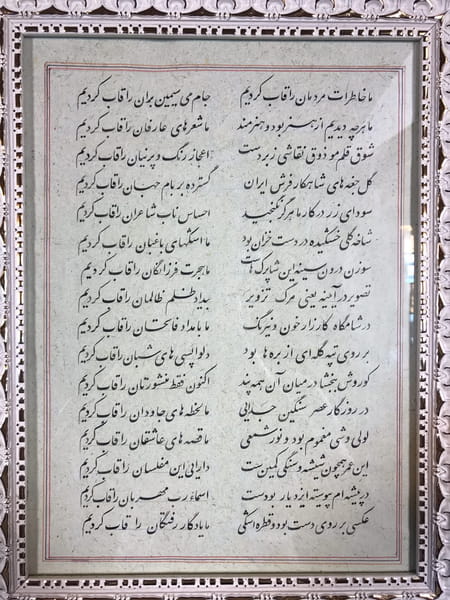 ما خاطرات مردمان را قاب کردیم جام می سیمین بران را قاب کردیم
ما هر چه دیدیم از هنر بود و هنرمند ما شعرهای عارفان را قاب کردیم
شوق قلم مو ذوق نقاشی زبردست اعجاز رنگ و پرنیان را قاب کردیم
گل جغه های شاهکار فرش ایران گسترده بر بام جهان را قاب کردیم
سودای زر در کار ما هرگز نگنجید احساس ناب شاعران را قاب کردیم
شاخه گلی خشکیده در دست خزان بود ما اشکهای باغبان را قاب کردیم
سوزن درون سینه این شاپرک هاست ما هجرت فرزانگان را قاب کردیم
تصویر در آینه یعنی مرگ تزویر بیداد ظلم ظالمان را قاب کردیم
در شامگاه کارزار خون و نیرنگ ما بامداد فاتحان را قاب کردیم
بر روی تپه گله ای از بره ها بود دلواپسی های شبان را قاب کردیم
کوروش ببخشا در میان آن همه پند اکنون فقط منشورتان را قاب کردیم
در روزگار عصر سنگین جدایی ما لحظه های جاودان را قاب کردیم
لولی وشی مغموم بود و نور شمعی ما قصه های عاشقان را قاب کردیم
این همچون شیشه و سنگی کمین ست دارایی این مفلسان را قاب کردیم
در پیشه ام پیوسته ایزد یار بودست اسماء رب مهربان را قاب کردیم
عکسی بر روی دست بود و قطره اشکی ما یادگار رفتگان را قاب کردیم